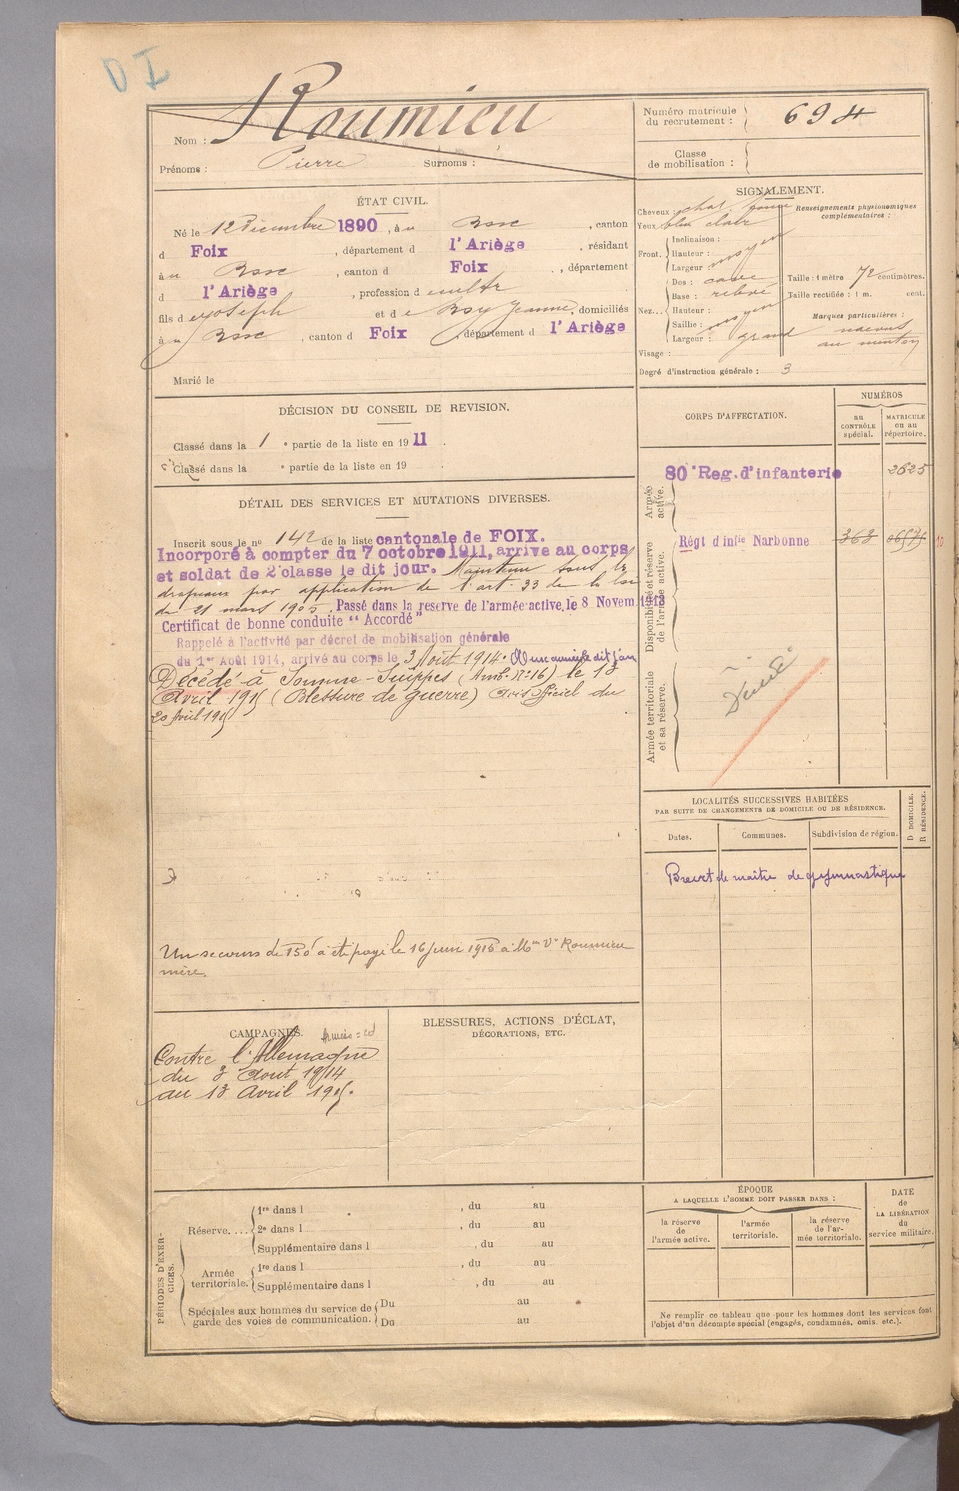 D I
Nom : Roumieu
Prénoms : Pierre Surnoms :
Numéro matricule du recrutement : 694
Classe de mobilisation :
ÉTAT CIVIL.
Né le 12 Décembre 1890, à u Bosc, canton
d Foix, département d l'Ariège, résidant
à u Bosc, canton d Foix, département
d l'Ariège, profession d cultr
fils d e Joseph et d e Jeanne, domiciliés
à u Bosc, canton d Foix, département d l'Ariège
Marié le
SIGNALEMENT.
Cheveux : chat.
Yeux bleu clair
Renseignements physionomiques complémentaires :
Front. Inclinaison :
Hauteur : moyen
Largeur :
Nez... Dos : cave
Base : relevé
Hauteur :
Saillie : moyen
Largeur :
Visage : grand
Taille : 1 mètre 72 centimètres.
Taille rectifiée : 1 m. cent.
Marques particulières :
naevus
au menton
Degré d'instruction générale : 3
DÉCISION DU CONSEIL DE REVISION.
Classé dans la 1 e partie de la liste en 1911.
Classé dans la e partie de la liste en 19 .
DÉTAIL DES SERVICES ET MUTATIONS DIVERSES.
Inscrit sous le no 142 de la liste cantonale de FOIX.
Incorporé à compter du 7 octobre 1911, arrivé au corps
et soldat de 2e classe le dit jour. Maintenu sous les
drapeaux par application de l'art. 33 de la loi
du 21 mars 1905. Passé dans la reserve de l'armée active, le 8 Novem 1913
Certificat de bonne conduite "Accordé"
Rappelé à l'activité par décret de mobilisation générale
du 1er Août 1914, arrivé au corps le 3 Août 1914. dit jour
Décédé à Somme-Suippes (Amb. No 16) le 13
Avril 1915 (Blessure de guerre) Avis officiel du
20 Avril 1915
Un secours de 150f a été payé le 16 Juin 1915 à Mme Ve Roumieu
mère.
CORPS D'AFFECTATION.
NUMÉROS
au CONTRÔLE spécial.
MATRICULE ou au répertoire.
Armée active.
80e Reg. d'infanterie 2625
Disponibilité et réserve de l'armée active.
Régt d'infie Narbonne 363
Armée territoriale et sa réserve.
LOCALITÉS SUCCESSIVES HABITÉES
PAR SUITE DE CHANGEMENTS DE DOMICILE OU DE RÉSIDENCE.
Dates. Communes. Subdivision de région. D DOMICILE. R RÉSIDENCE.
Brevet de maître de gymnastique
CAMPAGNES.
Contre l'Allemagne
du 3 Aout 1914
au 13 Avril 1915.
BLESSURES, ACTIONS D'ÉCLAT, DÉCORATIONS, ETC.
PÉRIODES D'EXERCICES.
Réserve.... 1re dans l , du au
2e dans l , du au
Supplémentaire dans l , du au
Armée territoriale. 1re dans l , du au
Supplémentaire dans l , du au
Spéciales aux hommes du service de garde des voies de communication. Du au
Du au
ÉPOQUE
A LAQUELLE L'HOMME DOIT PASSER DANS :
la réserve de l'armée active.
l'armée territoriale.
la réserve de l'armée territoriale.
DATE de LA LIBÉRATION du service militaire.
Ne remplir ce tableau que pour les hommes dont les services font
l'objet d'un décompte spécial (engagés, condamnés, omis, etc.).